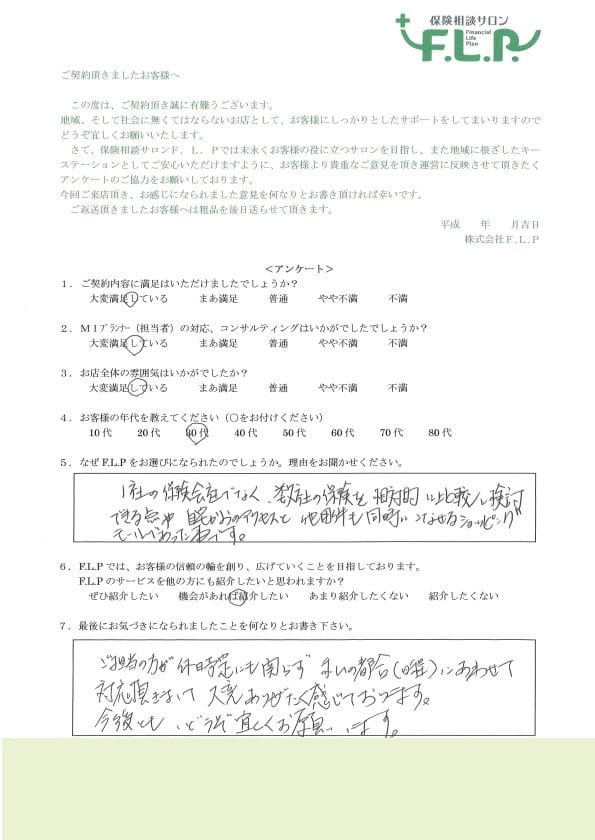 保険相談サロン
Financial
Life
Plan
F.L.P.
ご契約頂きましたお客様へ
この度は、ご契約頂き誠に有難うございます。
地域、そして社会に無くてはならないお店として、お客様にしっかりとしたサポートをしてまいりますので
どうぞ宜しくお願いいたします。
さて、保険相談サロンF．L．Pでは末永くお客様の役に立つサロンを目指し、また地域に根ざしたキー
ステーションとしてご安心いただけますように、お客様より貴重なご意見を頂き運営に反映させて頂きたく
アンケートのご協力をお願いしております。
今回ご来店頂き、お感じになられました意見を何なりとお書き頂ければ幸いです。
ご返送頂きましたお客様へは粗品を後日送らせて頂きます。
平成　　年　　月吉日
株式会社F.L.P
＜アンケート＞
１．ご契約内容に満足はいただけましたでしょうか？
大変満足している　まあ満足　普通　やや不満　不満
２．ＭＩプランナー（担当者）の対応、コンサルティングはいかがでしたでしょうか？
大変満足している　まあ満足　普通　やや不満　不満
３．お店全体の雰囲気はいかがでしたか？
大変満足している　まあ満足　普通　やや不満　不満
４．お客様の年代を教えてください（○をお付けください）
10代　20代　30代　40代　50代　60代　70代　80代
５．なぜF.L.Pをお選びになられたのでしょうか。理由をお聞かせください。
1社の保険会社でなく、数社の保険を相対的に比較し検討
できる点や 自宅からのアクセスと 他用件も同時にこなせるショッピング
モールであった事です。
６．F.L.Pでは、お客様の信頼の輪を創り、広げていくことを目指しております。
F.L.Pのサービスを他の方にも紹介したいと思われますか？
ぜひ紹介したい　機会があれば紹介したい　あまり紹介したくない　紹介したくない
７．最後にお気づきになられましたことを何なりとお書き下さい。
ご担当の方が休日予定にも関らず まいの都合(日曜)にあわせて
対応頂きまして 大変ありがたく感じております。
今後とも、どうぞ宜しくお願いいます。